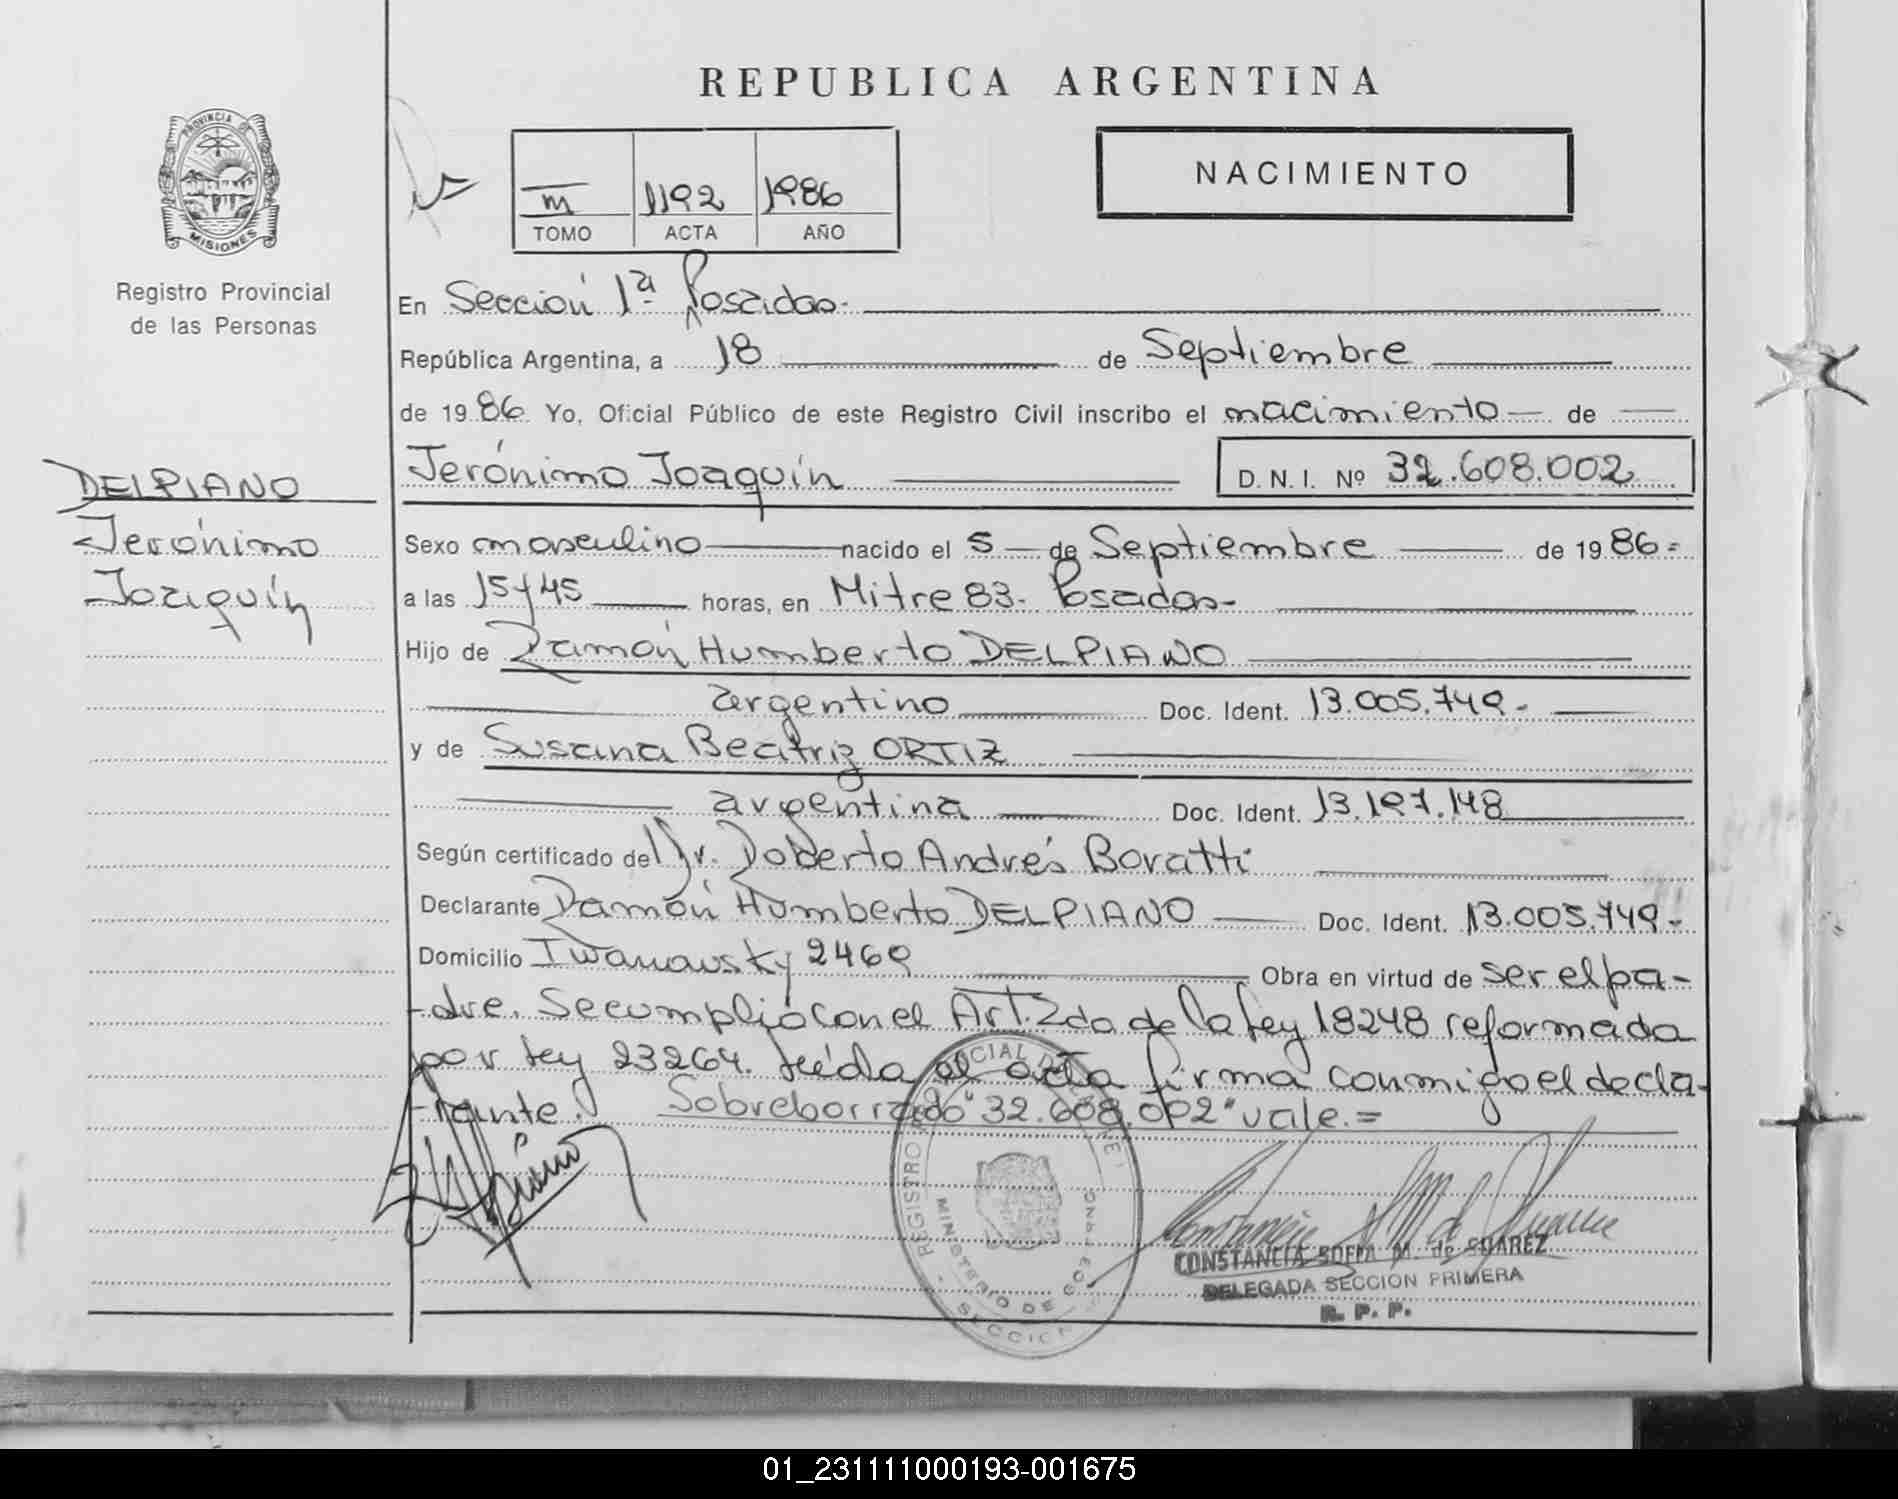 REPUBLICA ARGENTINA
PROVINCIA DE
MISIONES
Registro Provincial
de las Personas
III 1192 1986
TOMO ACTA AÑO
NACIMIENTO
En Sección 1ª Posadas.
República Argentina, a 18 de Septiembre
de 1986. Yo, Oficial Público de este Registro Civil inscribo el nacimiento de
Jerónimo Joaquín D. N. I. Nº 32.608.002
DELPIANO
Jerónimo
Joaquín
Sexo masculino nacido el 5 de Septiembre de 1986=
a las 15y45 horas, en Mitre 83. Posadas-
Hijo de Ramón Humberto DELPIANO
argentino Doc. Ident. 13.005.749.-
y de Susana Beatriz ORTIZ
argentina Doc. Ident. 13.197.148
Según certificado del Dr. Roberto Andrés Boratti
Declarante Ramón Humberto DELPIANO Doc. Ident. 13.005.749-
Domicilio Iwanowsky 2469 Obra en virtud de ser el pa-
-dre. Se cumplió con el Art. 2do de la ley 18248 reformada
por ley 23264. Leída el acta firma conmigo el decla-
-rante. Sobreborrado "32.608.002" vale.=
CONSTANCIA SOFIA M. de SUAREZ
DELEGADA SECCION PRIMERA
R. P. P.
01_231111000193-001675